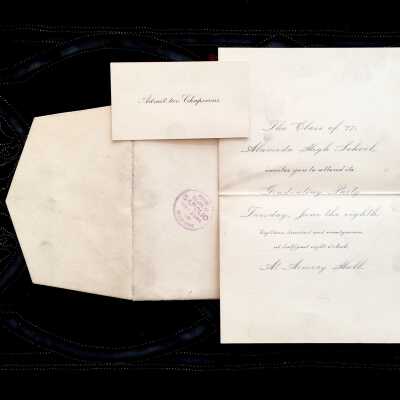 Admit two Chaperons
The Class of '97,
Alameda High School,
invites you to attend its
Graduating Party
Tuesday, June the eighth,
eighteen hundred and ninetyseven
at half past eight o'clock
At Armory Hall.